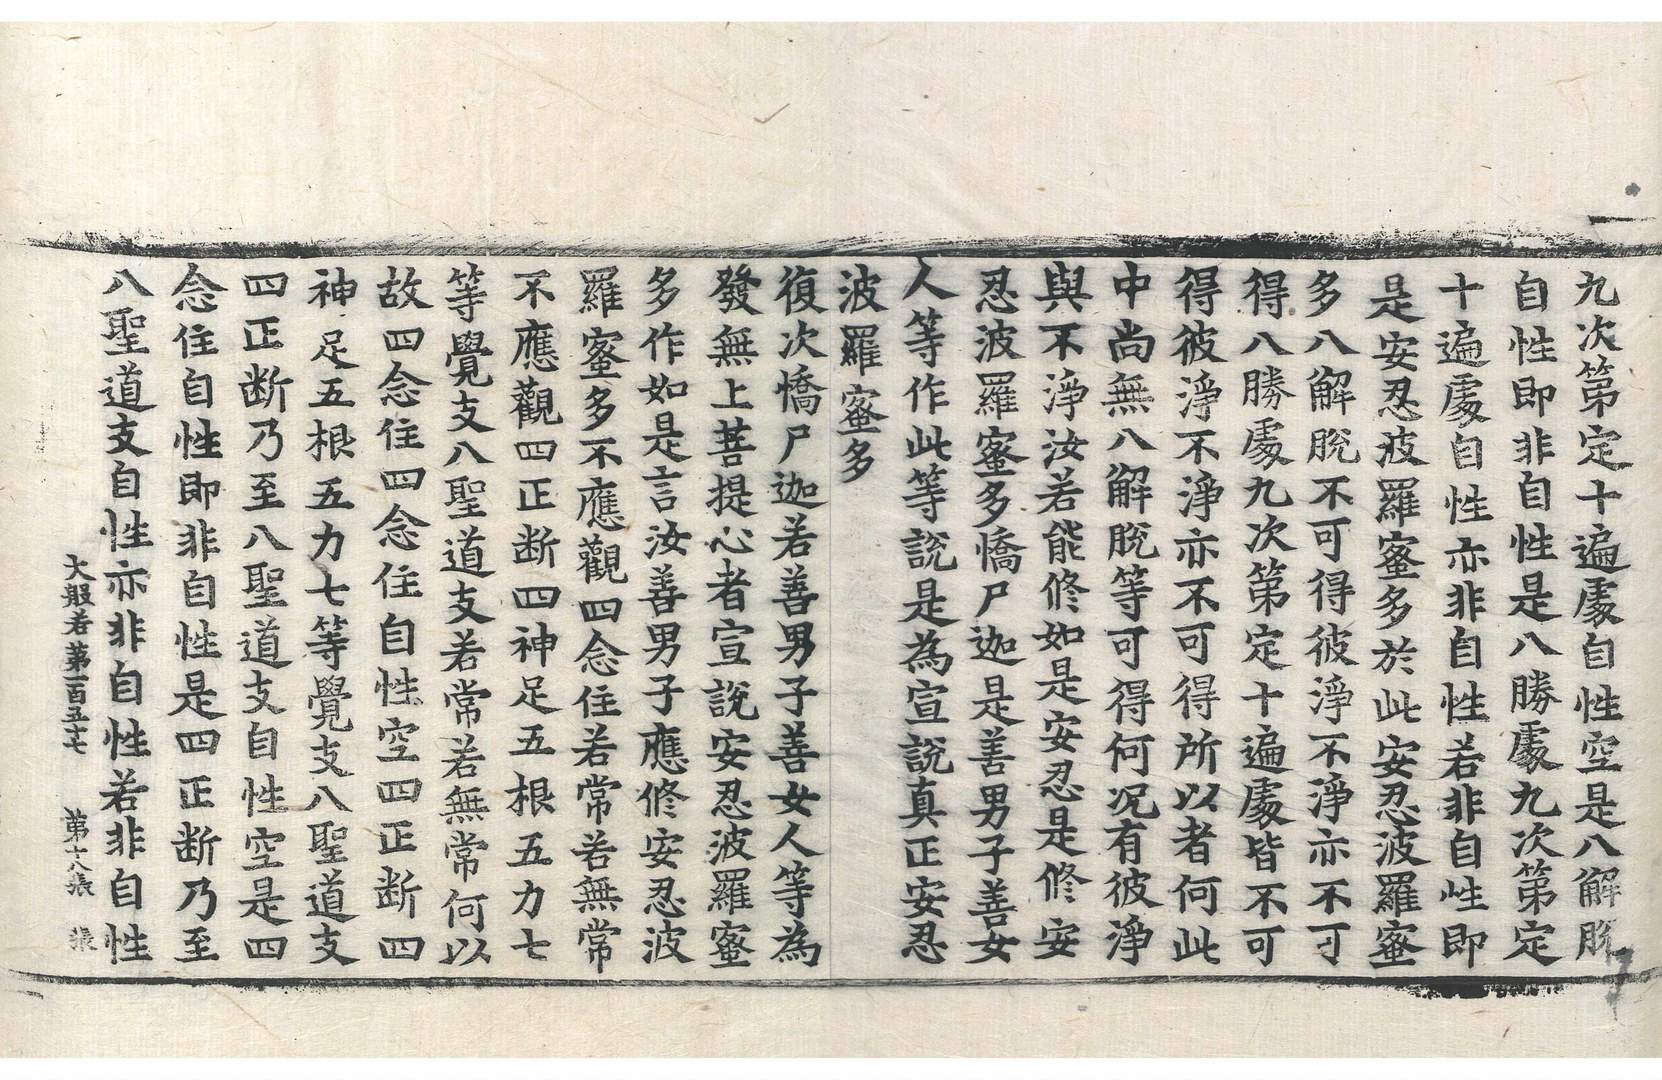 九次第定十遍處自性空是八解脫
自性即非自性是八勝處九次第定
十遍處自性亦非自性若非自性即
是安忍波羅蜜多於此安忍波羅蜜
多八解脫不可得彼淨不淨亦不可
得八勝處九次第定十遍處皆不可
得彼淨不淨亦不可得所以者何此
中尚無八解脫等可得何況有彼淨
與不淨汝若能修如是安忍是修安
忍波羅蜜多憍尸迦是善男子善女
人等作此等說是為宣說真正安忍
波羅蜜多
復次憍尸迦若善男子善女人等為
發無上菩提心者宣說安忍波羅蜜
多作如是言汝善男子應修安忍波
羅蜜多不應觀四念住若常若無常
不應觀四正断四神足五根五力七
等覺支八聖道支若常若無常何以
故四念住四念住自性空四正断四
神足五根五力七等覺支八聖道支
四正断乃至八聖道支自性空是四
念住自性即非自性是四正断乃至
八聖道支自性亦非自性若非自性
大般若第一百五十七 第十八張 張